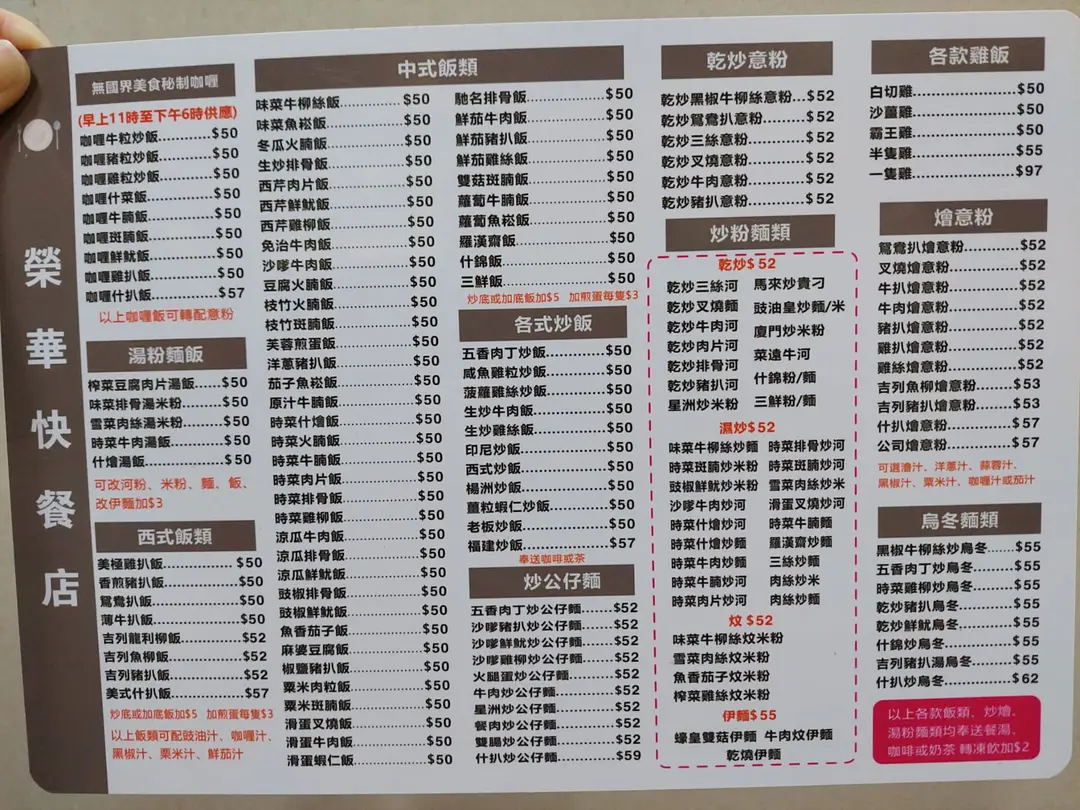 榮華快餐店
無國界美食秘制咖喱
(早上11時至下午6時供應)
咖喱牛粒炒飯............$50
咖喱豬粒炒飯............$50
咖喱雞粒炒飯............$50
咖喱什菜飯............$50
咖喱牛腩飯............$50
咖喱斑腩飯............$50
咖喱鮮魷飯............$50
咖喱雞扒飯............$50
咖喱什扒飯............$57
以上咖喱飯可轉配意粉
湯粉麵飯
榨菜豆腐肉片湯飯.....$50
味菜排骨湯米粉.......$50
雪菜肉絲湯米粉.......$50
時菜牛肉湯飯.........$50
什燴湯飯............$50
可改河粉、米粉、麵、飯、
改伊麵加$3
西式飯類
美極雞扒飯............$50
香煎豬扒飯............$50
鴛鴦扒飯............$50
薄牛扒飯............$50
吉列龍利柳飯.........$52
吉列魚柳飯............$52
吉列豬扒飯............$52
美式什扒飯............$57
炒底或加底飯加$5 加煎蛋每隻$3
以上飯類可配豉油汁、咖喱汁、
黑椒汁、粟米汁、鮮茄汁
中式飯類
味菜牛柳絲飯............$50
味菜魚崧飯............$50
冬瓜火腩飯............$50
生炒排骨飯............$50
西芹肉片飯............$50
西芹鮮魷飯............$50
西芹雞柳飯............$50
免治牛肉飯............$50
沙嗲牛肉飯............$50
豆腐火腩飯............$50
枝竹火腩飯............$50
枝竹斑腩飯............$50
芙蓉煎蛋飯............$50
洋蔥豬扒飯............$50
茄子魚崧飯............$50
原汁牛腩飯............$50
時菜什燴飯............$50
時菜火腩飯............$50
時菜牛腩飯............$50
時菜肉片飯............$50
時菜排骨飯............$50
時菜雞柳飯............$50
涼瓜牛肉飯............$50
涼瓜排骨飯............$50
涼瓜鮮魷飯............$50
豉椒排骨飯............$50
豉椒鮮魷飯............$50
魚香茄子飯............$50
麻婆豆腐飯............$50
椒鹽豬扒飯............$50
粟米肉粒飯............$50
粟米斑腩飯............$50
滑蛋叉燒飯............$50
滑蛋牛肉飯............$50
滑蛋蝦仁飯............$50
馳名排骨飯............$50
鮮茄牛肉飯............$50
鮮茄豬扒飯............$50
鮮茄雞絲飯............$50
雙菇斑腩飯............$50
蘿蔔牛腩飯............$50
蘿蔔魚崧飯............$50
羅漢齋飯............$50
什錦飯............$50
三鮮飯............$50
炒底或加底飯加$5 加煎蛋每隻$3
各式炒飯
五香肉丁炒飯............$50
咸魚雞粒炒飯............$50
菠蘿雞絲炒飯............$50
生炒牛肉飯............$50
生炒雞絲飯............$50
印尼炒飯............$50
西式炒飯............$50
楊洲炒飯............$50
薑粒蝦仁炒飯............$50
老板炒飯............$50
福建炒飯............$57
奉送咖啡或茶
炒公仔麵
五香肉丁炒公仔麵......$52
沙嗲豬扒炒公仔麵......$52
沙嗲鮮魷炒公仔麵......$52
沙嗲雞柳炒公仔麵......$52
火腿蛋炒公仔麵........$52
牛肉炒公仔麵..........$52
星洲炒公仔麵..........$52
餐肉炒公仔麵..........$52
雙腸炒公仔麵..........$52
什扒炒公仔麵..........$59
乾炒意粉
乾炒黑椒牛柳絲意粉...$52
乾炒鴛鴦扒意粉.......$52
乾炒三絲意粉.........$52
乾炒叉燒意粉.........$52
乾炒牛肉意粉.........$52
乾炒豬扒意粉.........$52
炒粉麵類
乾炒$52
乾炒三絲河 馬來炒貴刁
乾炒叉燒麵 豉油皇炒麵/米
乾炒牛肉河 廈門炒米粉
乾炒肉片河 菜遠牛河
乾炒排骨河 什錦粉/麵
乾炒豬扒河 三鮮粉/麵
星洲炒米粉
濕炒$52
味菜牛柳絲炒麵 時菜排骨炒河
時菜斑腩炒米粉 時菜斑腩炒河
豉椒鮮魷炒米粉 雪菜肉絲炒米
沙嗲牛肉炒河 滑蛋叉燒炒河
時菜什燴炒河 時菜牛腩麵
時菜什燴炒麵 羅漢齋炒麵
時菜牛肉炒麵 三絲炒麵
時菜牛腩炒河 肉絲炒米
時菜肉片炒河 肉絲炒麵
炆$52
味菜牛柳絲炆米粉
雪菜肉絲炆米粉
魚香茄子炆米粉
榨菜雞絲炆米粉
伊麵$55
蠔皇雙菇伊麵 牛肉炆伊麵
乾燒伊麵
各款雞飯
白切雞............$50
沙薑雞............$50
霸王雞............$50
半隻雞............$55
一隻雞............$97
燴意粉
鴛鴦扒燴意粉.........$52
叉燒燴意粉............$52
牛扒燴意粉............$52
牛肉燴意粉............$52
豬扒燴意粉............$52
雞扒燴意粉............$52
雞絲燴意粉............$52
吉列魚柳燴意粉.......$53
吉列豬扒燴意粉.......$53
什扒燴意粉............$57
公司燴意粉............$57
可選燴汁、洋蔥汁、蒜蓉汁、
黑椒汁、粟米汁、咖喱汁或茄汁
烏冬麵類
黑椒牛柳絲炒烏冬.....$55
五香肉丁炒烏冬.......$55
時菜雞柳炒烏冬.......$55
乾炒豬扒烏冬.........$55
乾炒鮮魷烏冬.........$55
什錦炒烏冬............$55
吉列豬扒湯烏冬.......$55
什扒炒烏冬............$62
以上各款飯類、炒燴、
湯粉麵類均奉送餐湯、
咖啡或奶茶 轉凍飲加$2